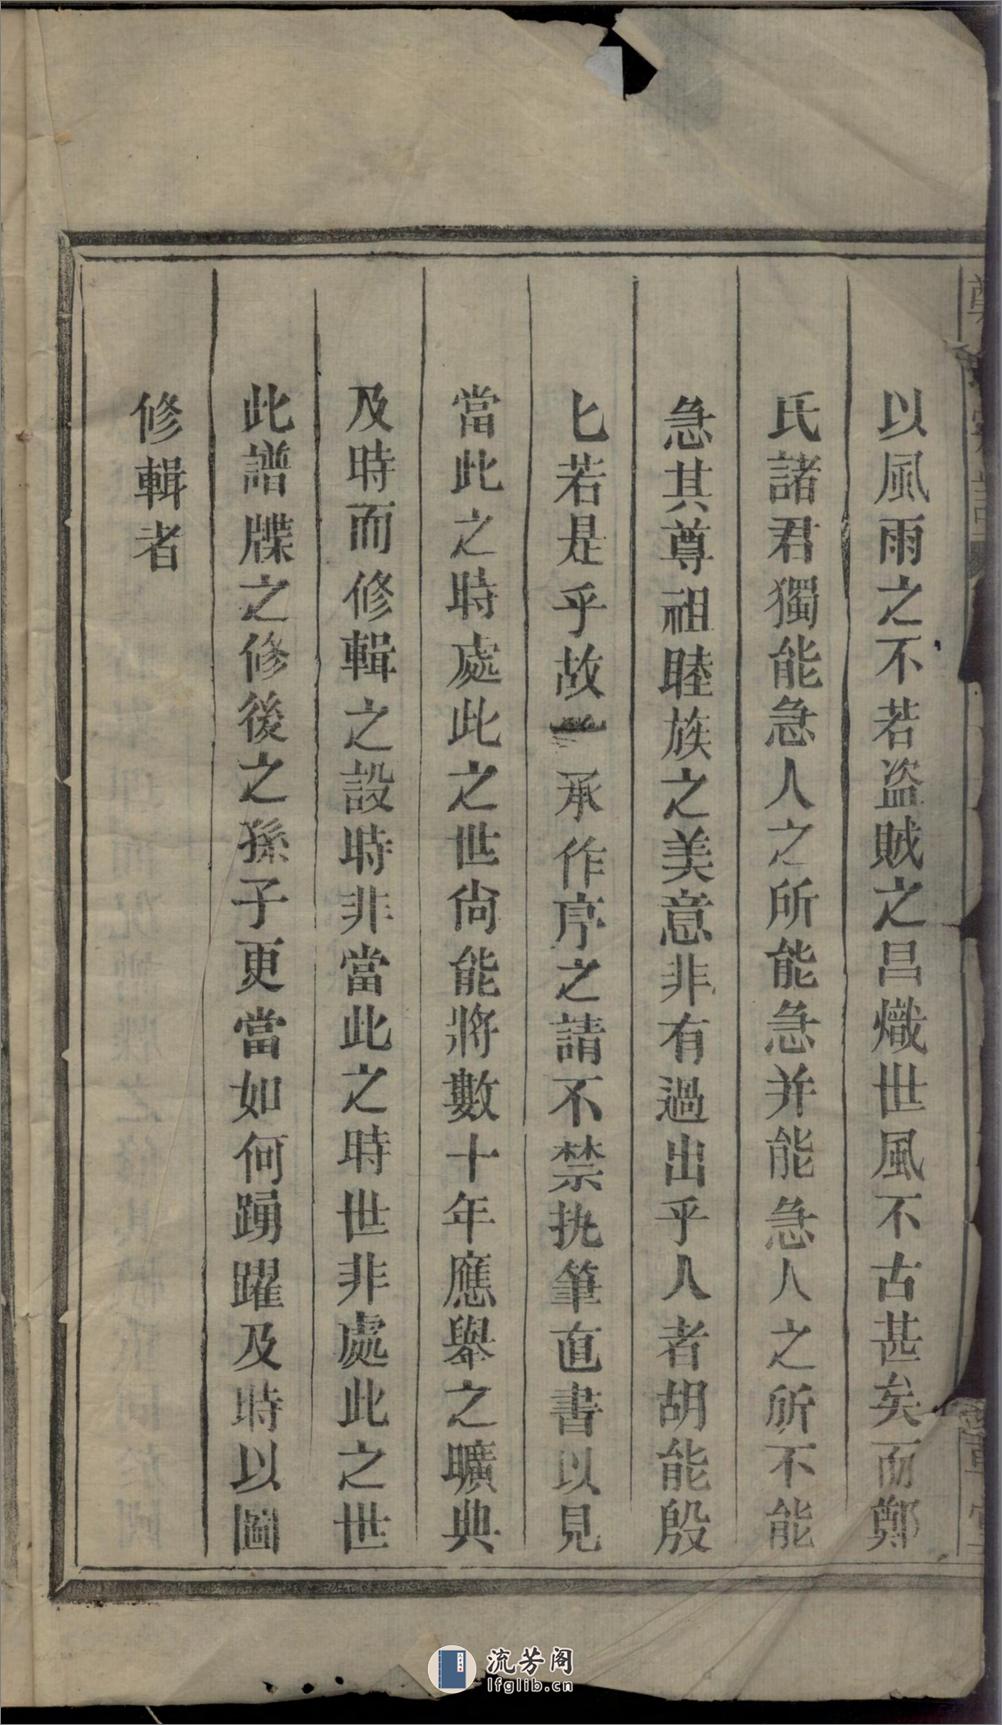 以風雨之不若盗賊之昌熾世風不古甚矣而鄭
氏諸君獨能急人之所能急并能急人之所不能
急其尊祖睦族之美意非有過出乎人者胡能殷
匕若是乎故一承作序之請不禁执筆直書以見
當此之時處此之世尙能將數十年應舉之曠典
及時而修輯之設時非當此之時世非處此之世
此譜牒之修後之孫子更當如何踴躍及時以圖
修輯者
流芳阁
lfglib.cn